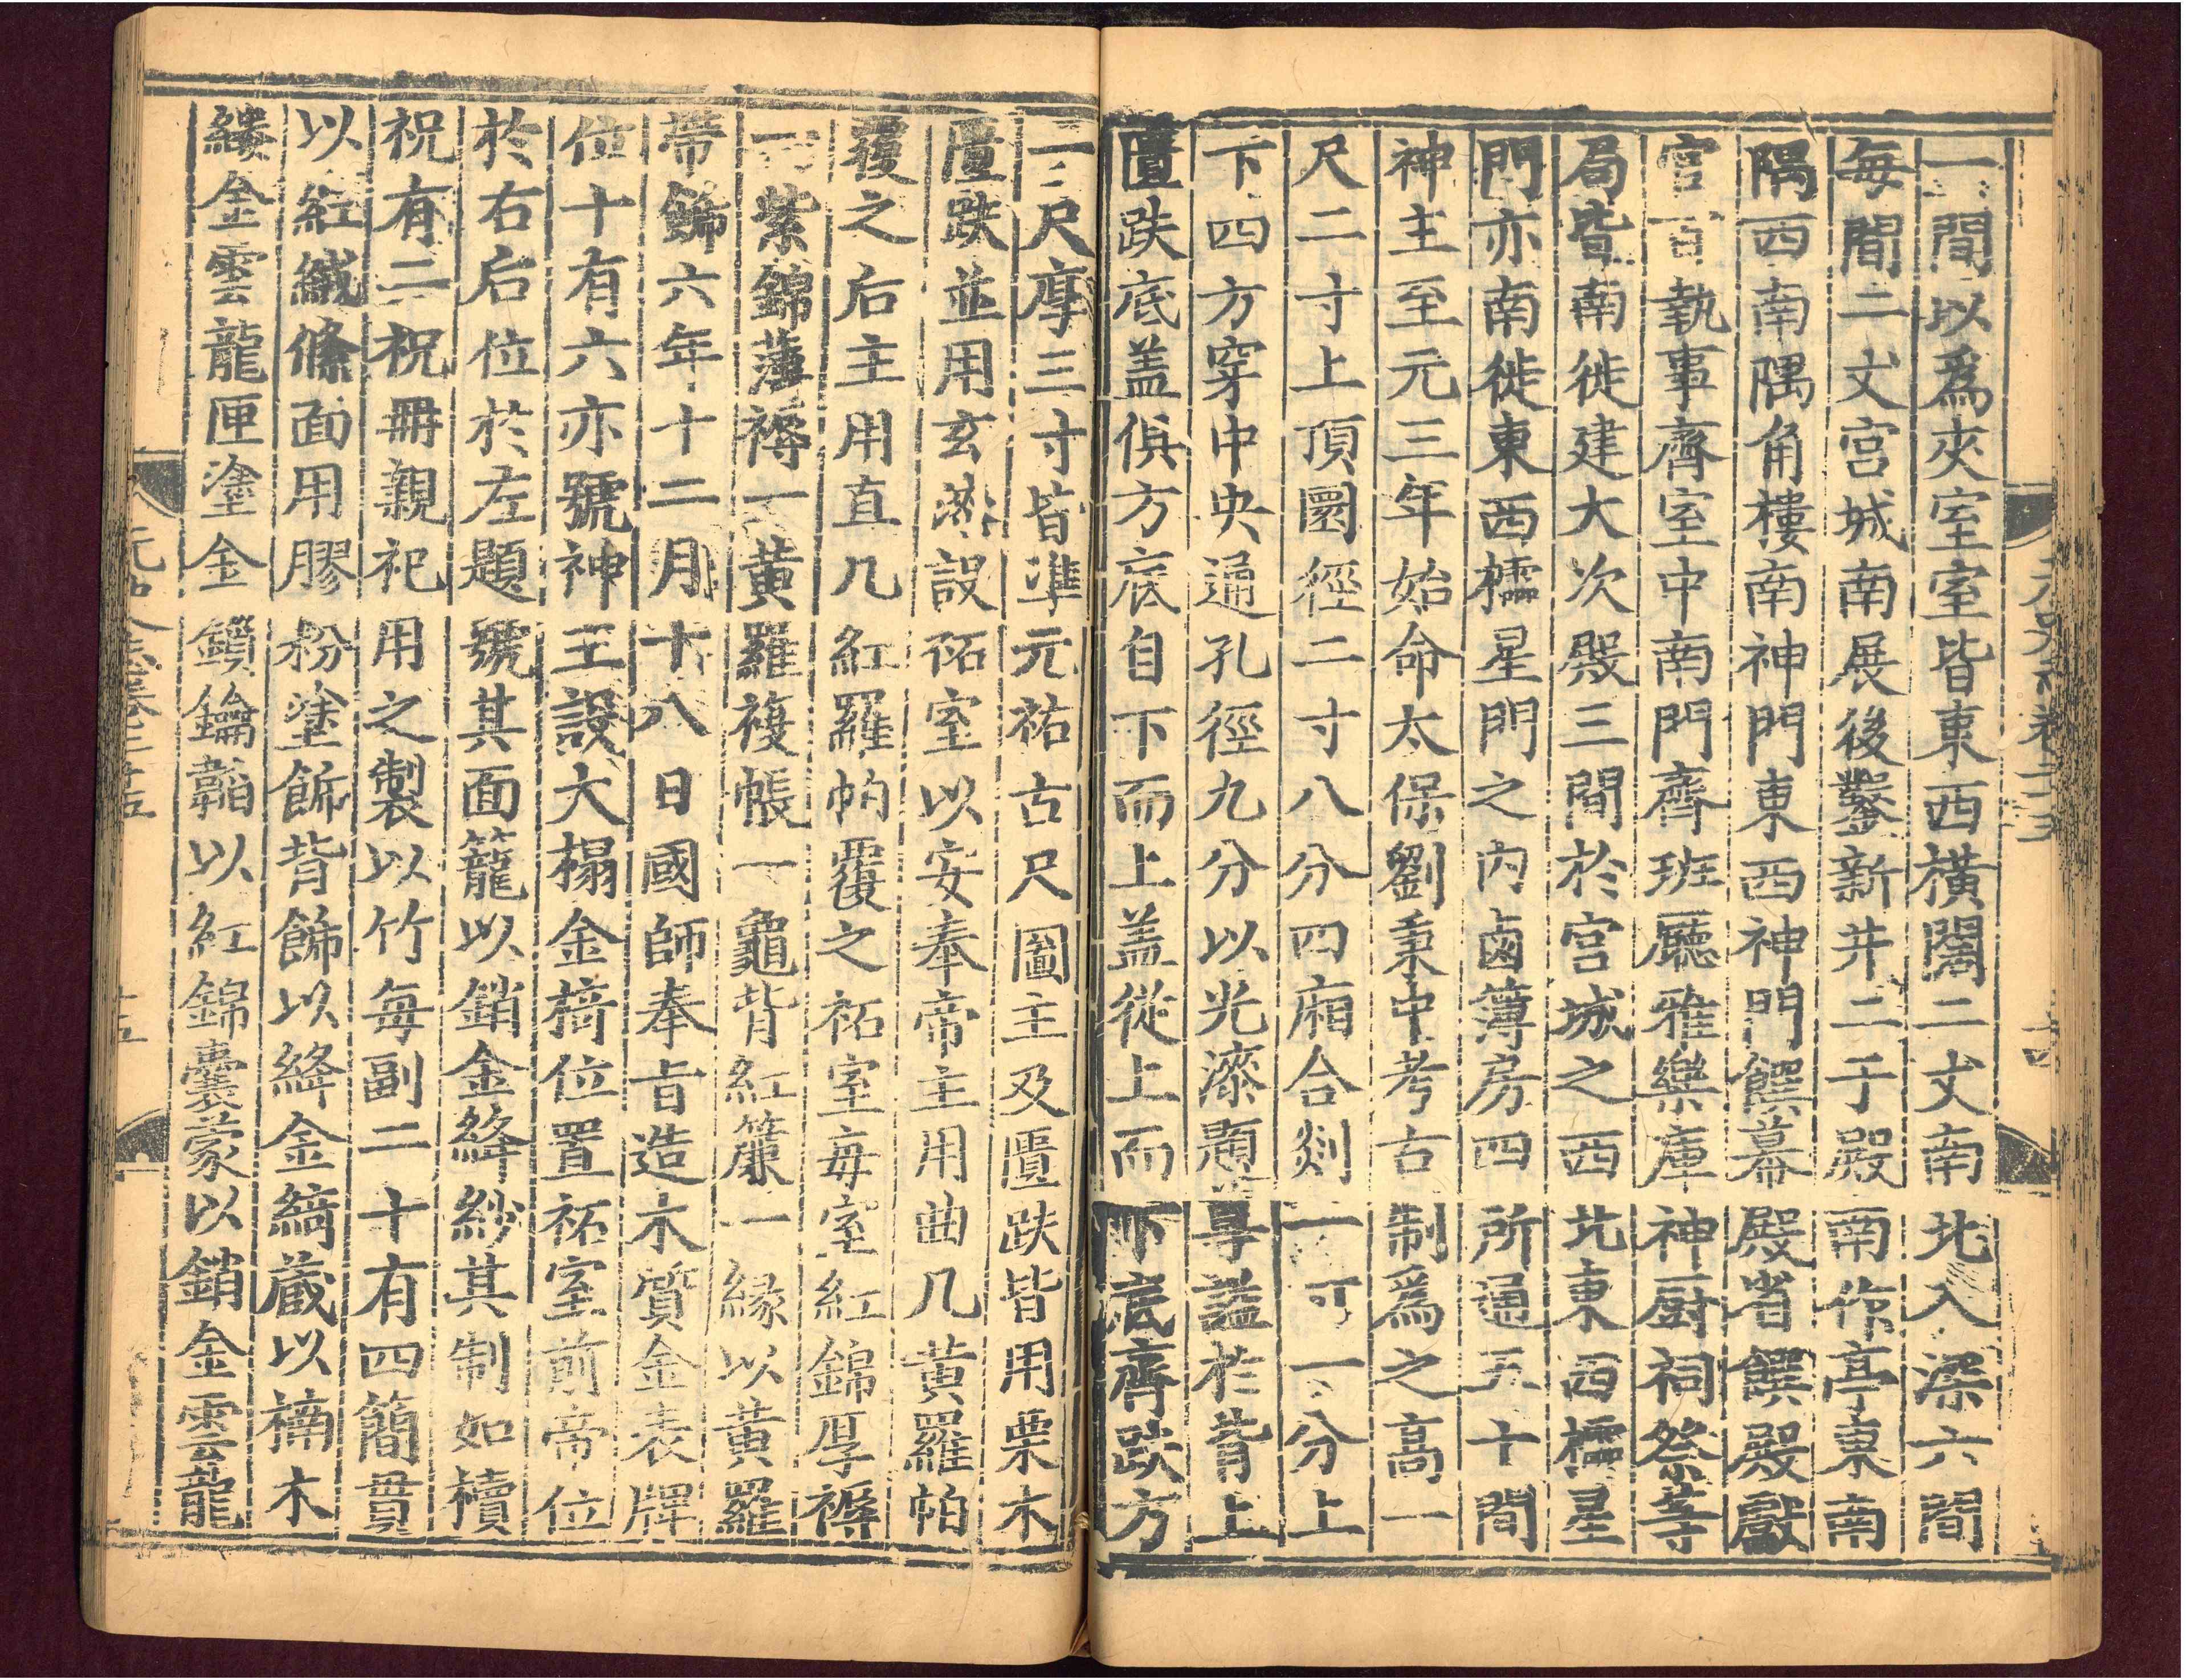 一間以爲夾室室皆東西横闊二丈南北入深六間
每間二丈宮城南展後鑿新井二于殿南作亭東南
隅西南隅角樓南神門東西神門饌幕殿省饌殿獻
官百執事齊室中南門齊班廳雅樂庫神厨祠祭等
局皆南徙建大次殿三間於宮城之西北東西櫺星
門亦南徙東西櫺星門之内鹵簿房四所通五十間
神主至元三年始命太保劉秉中考古制爲之高一
尺二寸上頂圜徑二寸八分四廂合剡一寸一分上
下四方穿中央通孔徑九分以光漆題尊謚於背上
匱趺底盖俱方底自下而上盖從上而下底齊趺方
一尺厚三寸皆準元祐古尺圖主及匱趺皆用栗木
匱趺並用玄漆設祏室以安奉帝主用曲几黄羅帕
覆之后主用直几紅羅帕覆之祏室每室紅錦厚褥
一紫錦薄褥一黄羅複帳一龜背紅簾一緣以黄羅
帶飾六年十二月十八日國師奉旨造木質金表牌
位十有六亦號神主設大榻金椅位置祏室前帝位
於右后位於左題號其面籠以銷金絳紗其制如櫝
祝有二祝冊親祀用之製以竹每副二十有四簡貫
以紅絨絛面用膠粉塗飾背飾以絳金綺藏以楠木
縷金雲龍匣塗金鎖鑰韜以紅錦囊蒙以銷金雲龍
十五